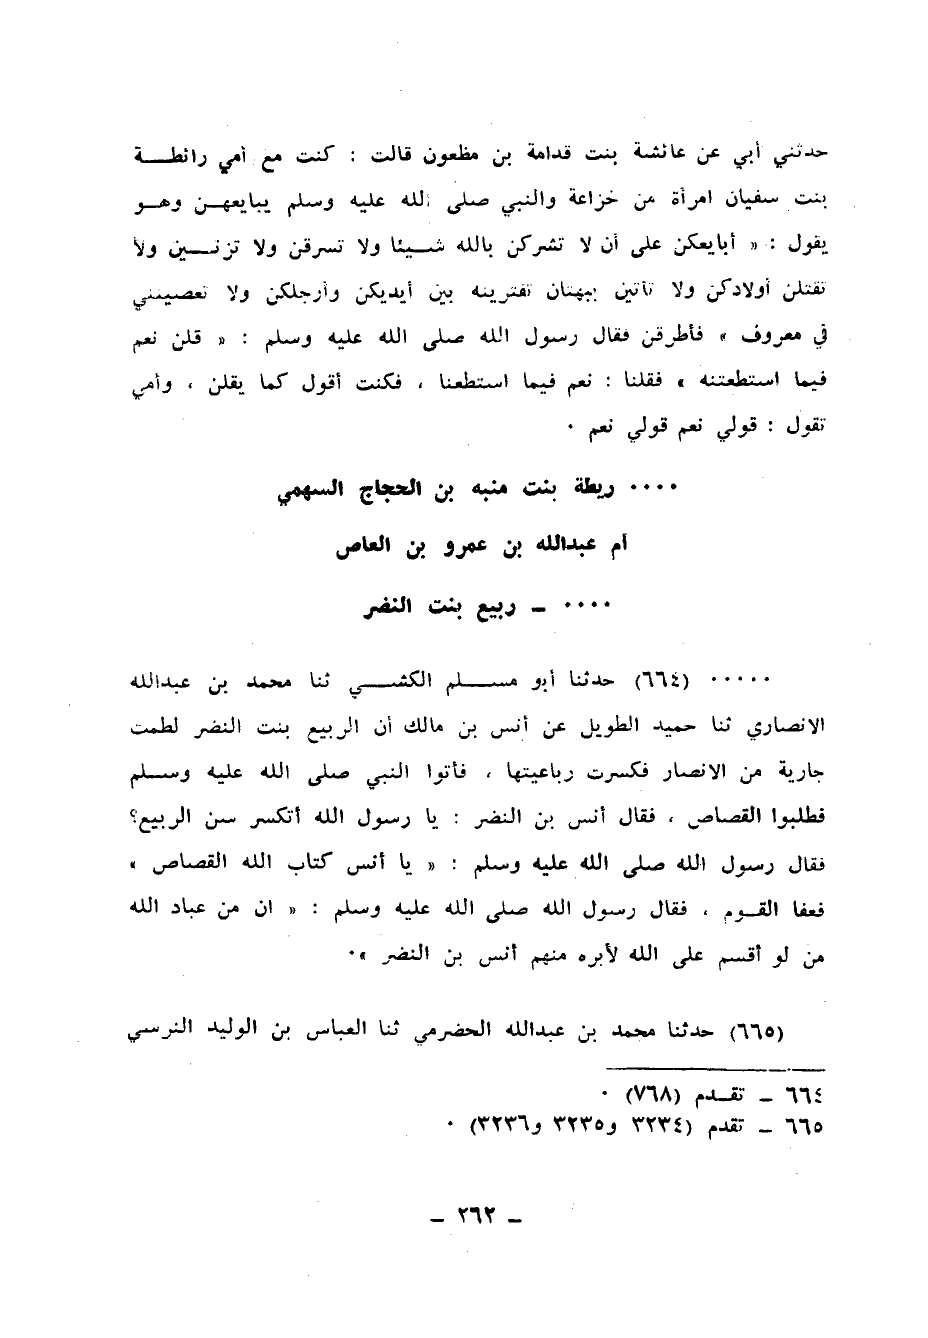 حدثني أبي عن عائشة بنت قدامة بن مظعون قالت : كنت مع أمي رائطة
بنت سفيان امرأة من خزاعة والنبي صلى الله عليه وسلم يبايعهن وهو
يقول : « أبايعكن على أن لا تشركن بالله شيئا ولا تسرقن ولا تزنين ولا
تقتلن أولادكن ولا تأتين ببهتان تفترينه بين أيديكن وأرجلكن ولا تعصينني
في معروف » فأطرقن فقال رسول الله صلى الله عليه وسلم : « قلن نعم
فيما استطعتنه » فقلنا : نعم فيما استطعنا ، فكنت أقول كما يقلن ، وأمي
تقول : قولي نعم قولي نعم ٠
٠٠٠٠ ريطة بنت منبه بن الحجاج السهمي
أم عبدالله بن عمرو بن العاص
٠٠٠٠ ـ ربيع بنت النضر
٠٠٠٠٠ (٦٦٤) حدثنا أبو مسلم الكشي ثنا محمد بن عبدالله
الانصاري ثنا حميد الطويل عن أنس بن مالك أن الربيع بنت النضر لطمت
جارية من الانصار فكسرت رباعيتها ، فأتوا النبي صلى الله عليه وسلم
فطلبوا القصاص ، فقال أنس بن النضر : يا رسول الله أتكسر سن الربيع؟
فقال رسول الله صلى الله عليه وسلم : « يا أنس كتاب الله القصاص »
فعفا القوم ، فقال رسول الله صلى الله عليه وسلم : « ان من عباد الله
من لو أقسم على الله لأبره منهم أنس بن النضر »٠
(٦٦٥) حدثنا محمد بن عبدالله الحضرمي ثنا العباس بن الوليد النرسي
٦٦٤ ـ تقدم (٧٦٨) ٠
٦٦٥ ـ تقدم (٣٢٣٤ و٣٢٣٥ و٣٢٣٦) ٠
ـ ٢٦٢ ـ